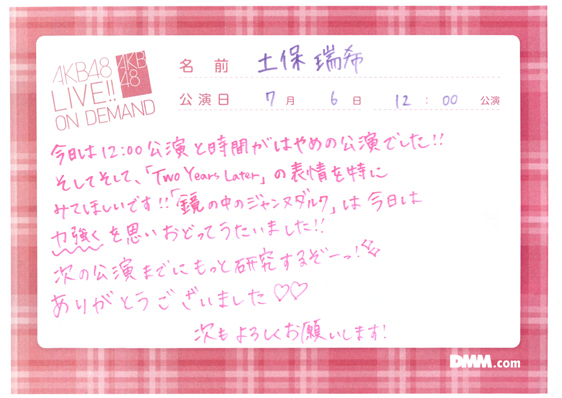 AKB48
LIVE!!
ON DEMAND
AKB
48
名前 土保瑞希
公演日 7月 6日 12:00 公演
今日は12:00公演と時間がはやめの公演でした!!
そしてそして、「Two Years Later」の表情を特に
みてほしいです!!「鏡の中のジャンヌダルク」は今日は
力強くを思いおどってうたいました!!
次の公演までにもっと研究するぞーっ!
ありがとうございました♡♡
次もよろしくお願いします!
DMM.com